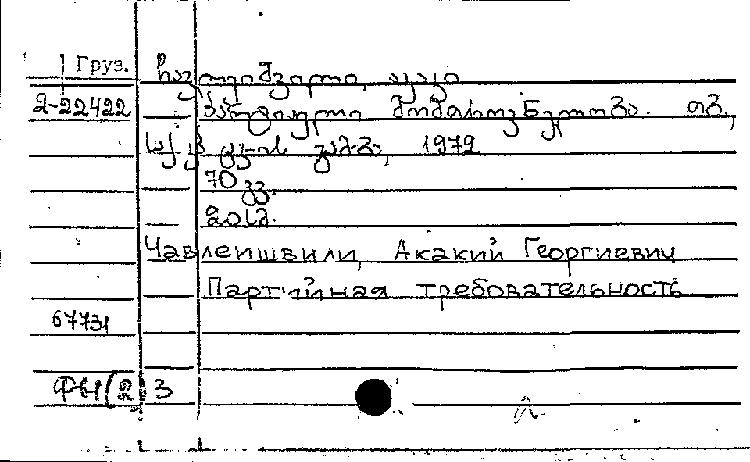 Груз. ჩავლეიშვილი, აკაკი
2-22422 პარტიული მომთხოვნელობა. თბ.,
საქ. კპ ც კ-ის გამ-ბა, 1979
70 გვ.
20სმ.
Чавлеишвили, Акакий Георгиевич
Партийная требовательность
67731
ФБ1(2)3